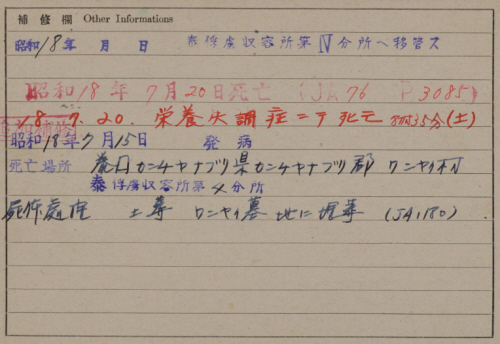 補修欄 Other Informations
昭和18年 月 日 泰俘虜収容所第Ⅳ分所ヘ移管ス
昭和18年7月20日死亡 (JA76 P3085)
18.7.20. 栄養失調症ニテ死亡 35分(土)
昭和18年7月15日 発病
死亡場所 泰国カンチャナブリ県カンチャナブリ郡 ワンヤイ村
泰俘虜収容所第 分所
屍体處理 土葬 ワンヤイ墓地に埋葬 (JA1180)